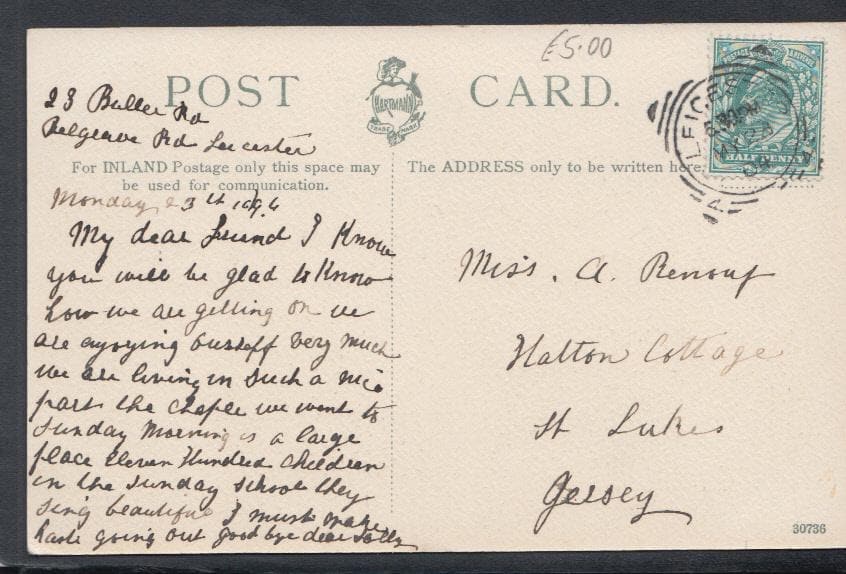 £5.00
POST CARD.
HARTMANN
TRADE MARK
23 Buller Rd
Belgrave Rd Leicester
For INLAND Postage only this space may
be used for communication.
The ADDRESS only to be written here.
LEICESTER
HALFPENNY
Monday
My dear friend I Know
you will be glad to Know
how we are getting on we
are ayoying ourself very much
we are living in such a nice
part the chaple we went to
Sunday Morning is a large
place Eleven Hundred Children
in the Sunday School they
sing beautiful I must make
haste going out good bye dear
Miss. A. Renouf
Halton Cottage
St Lukes
Jersey
30736